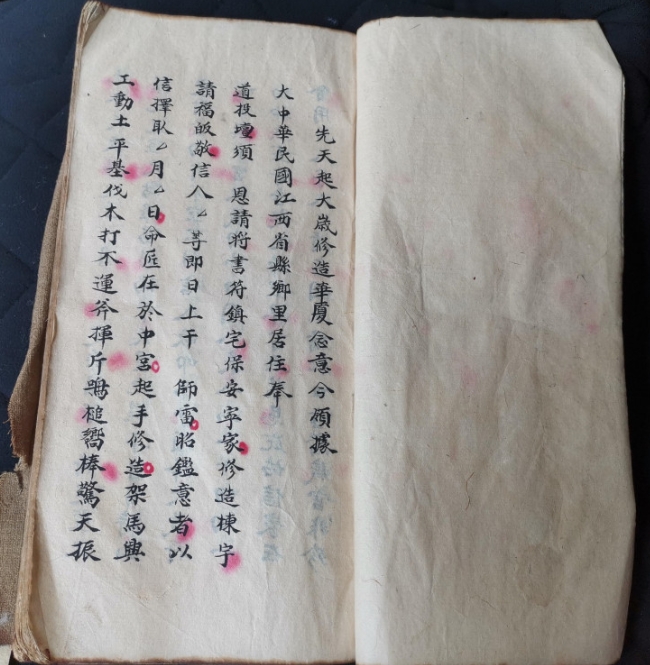 先天起大歲修造華厦念意今傾據
大中華民國江西省縣鄉里居住奉
道投壇須 恩請将書符鎮宅保安寧家修造棟宇
請福皈敬信人厶等即日上干 師雷昭鑑意者以
信擇取厶月厶日命匠在於中宮起手修造架馬興
工動土平基伐木打不運斧揮斤鳴槌嚮棒驚天振